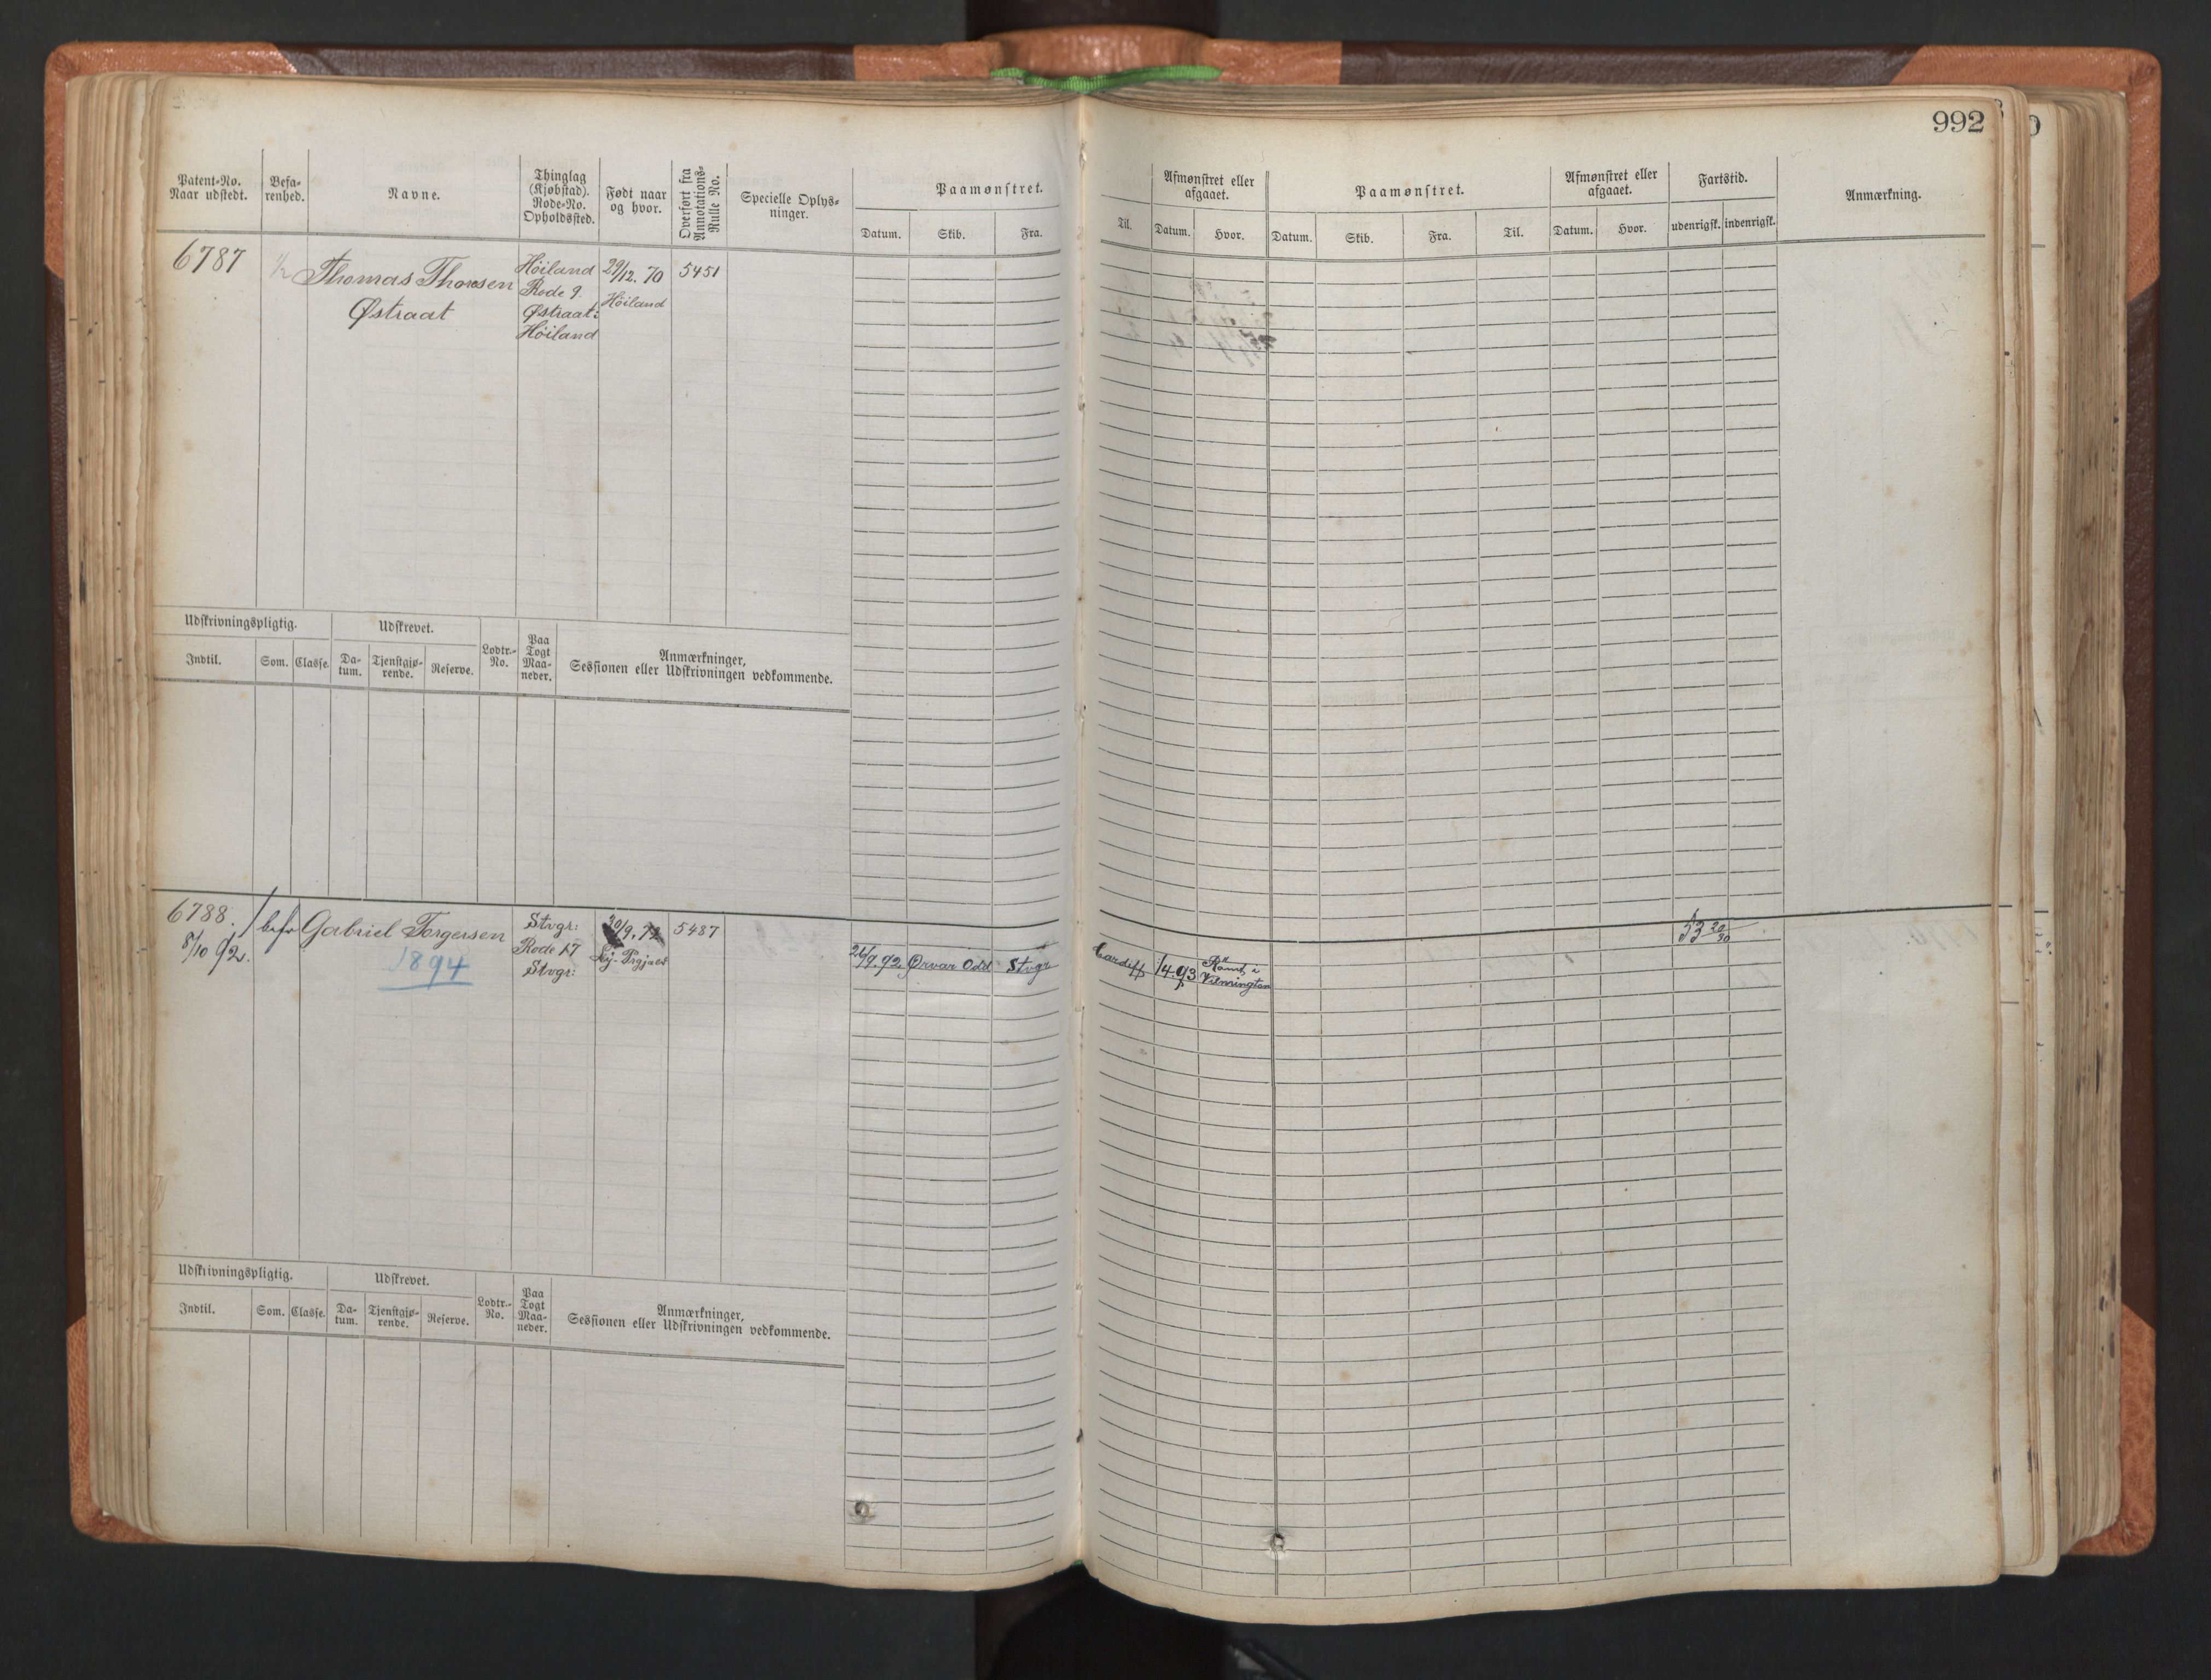 992
Patent-No.
Naar udstedt.
Befa-
renhed.
Navne.
Thinglag
(Kjøbstad).
Rode-No.
Opholdssted.
Født naar
og hvor.
Overført fra
Annotations-
Rulle No.
Specielle Oplys-
ninger.
Paamønstret.
Datum.
Skib.
Fra.
Til.
Afmønstret eller
afgaaet.
Datum.
Hvor.
Paamønstret.
Datum.
Skib.
Fra.
Til.
Afmønstret eller
afgaaet.
Datum.
Hvor.
Fartstid.
udenrigsk.
indenrigsk.
Anmærkning.
6787
1/2
Thomas Thorsen
Østraat
Höiland
Rode 9.
Østraat:
Höiland
29/12. 70
Höiland
5451
Udskrivningspligtig.
Udskrevet.
Indtil.
Som.
Classe.
Da-
tum.
Tjenstgjø-
rende.
Reserve.
Lodtr.-
No.
Paa
Togt
Maa-
neder.
Anmærkninger,
Sessionen eller Udskrivningen vedkommende.
6788.
8/10 92.
befr
Gabriel Torgersen
1894
Stvgr:
Rode 17
Stvgr:
30/9. 72
5487
26/9.92.
Ørvar Odd
Stvgr
Cardiff
Rømt i
Vilmington
Udskrivningspligtig.
Udskrevet.
Indtil.
Som.
Classe.
Da-
tum.
Tjenstgjø-
rende.
Reserve.
Lodtr.-
No.
Paa
Togt
Maa-
neder.
Anmærkninger,
Sessionen eller Udskrivningen vedkommende.